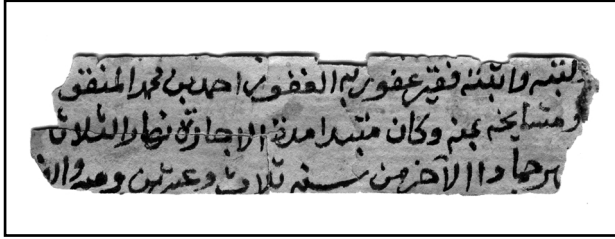 كتبه واثبته فقير عفو ربه الغفور احمد بن محمد المنفق
ومشايخه بمنه وكان مبتدا مدة الاجازة نهار الثلاث
جماد الاخر من سنه ثلاث وعشرين وميه والف